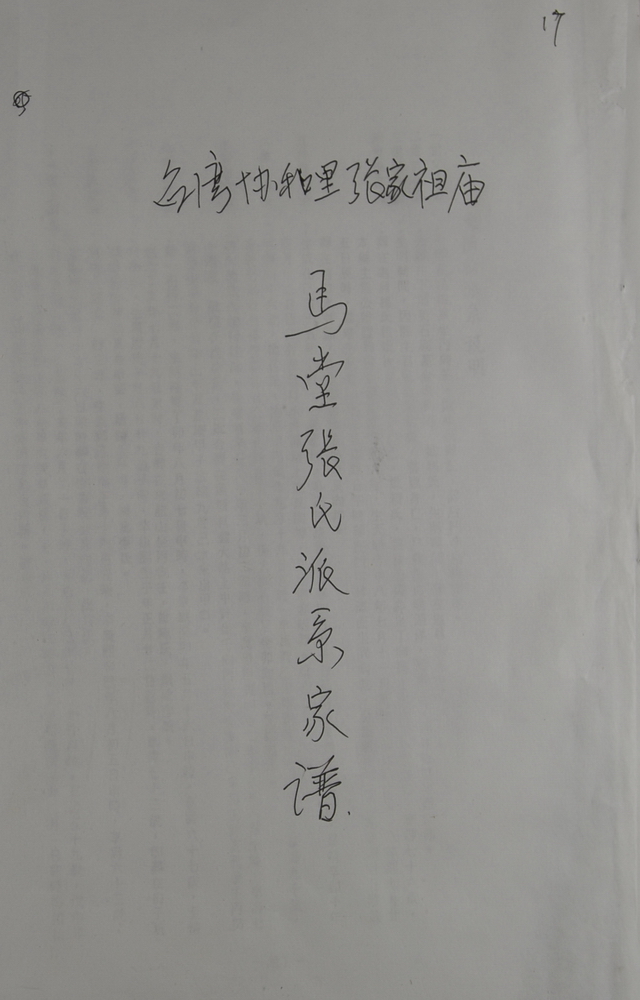 17
台湾协和里张家祖庙
馬堂張氏派系家谱.